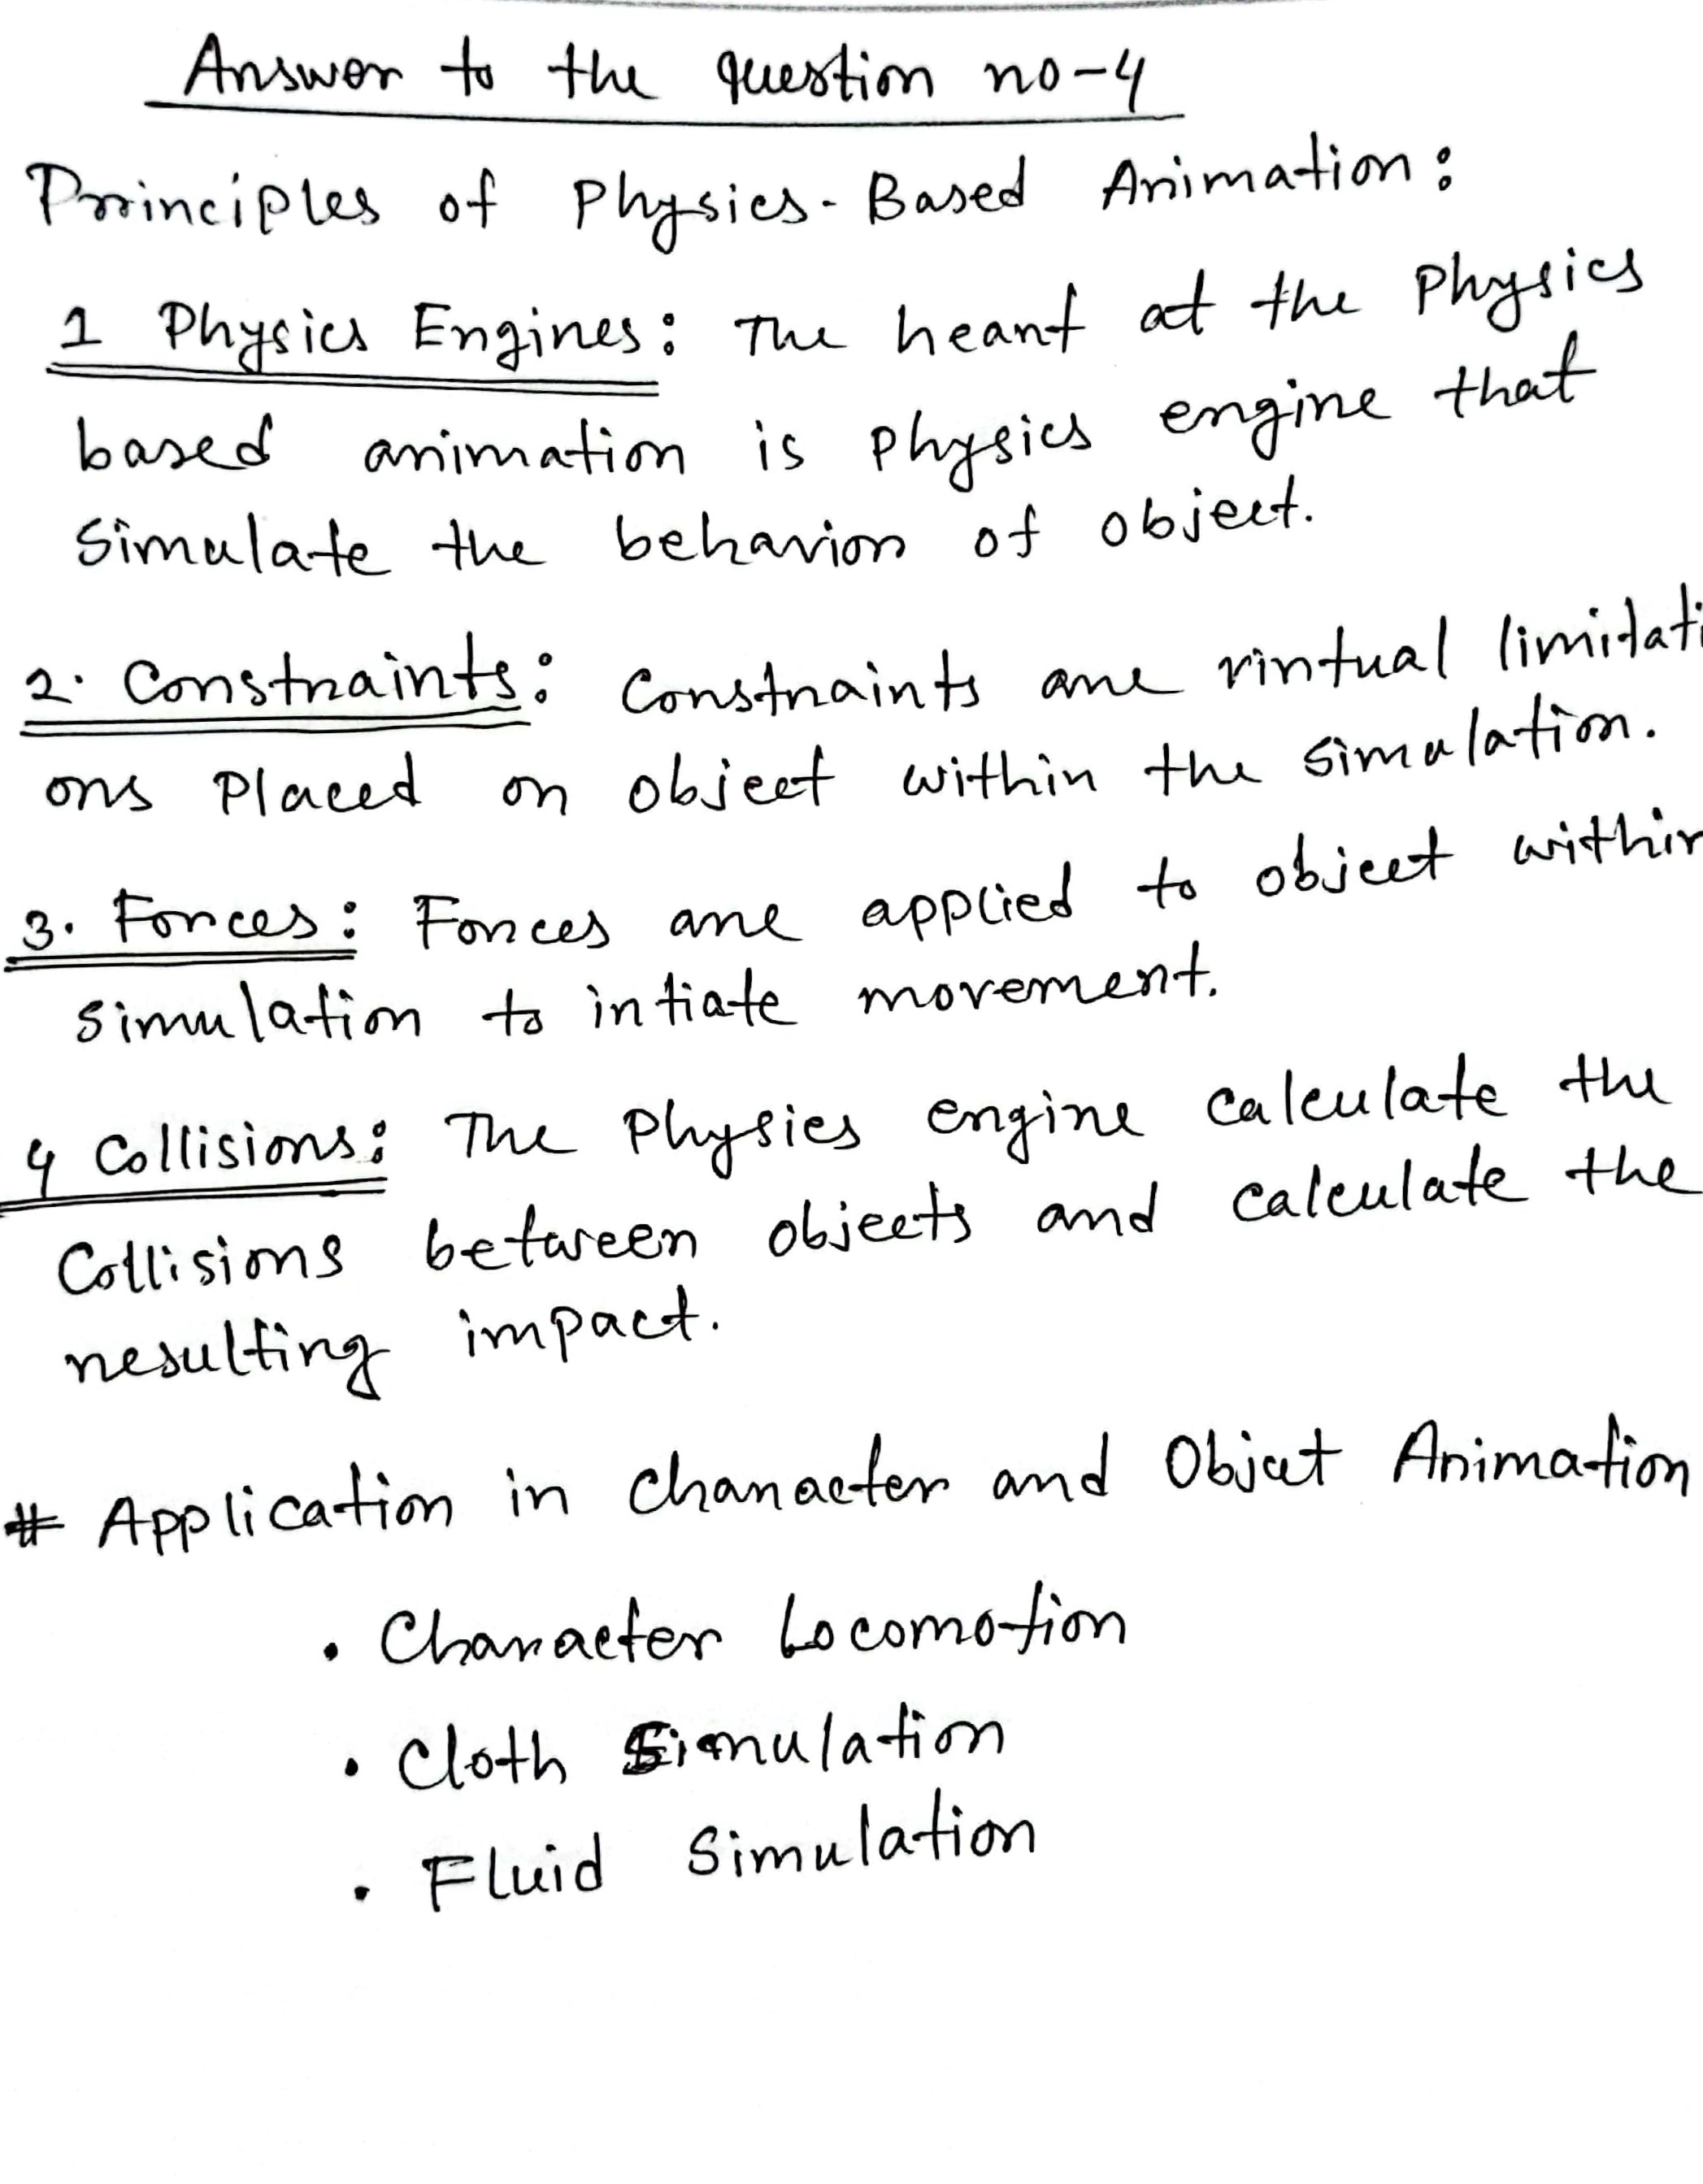 Answer to the question no-4
Principles of Physics-Based Animation:
1 Physics Engines: The heart at the Physics
based animation is Physics engine that
simulate the behavior of object.
2. Constraints: Constraints are virtual limitati
ons placed on object within the simulation.
3. Forces: Forces are applied to object within
simulation to intiate movement.
4 Collisions: The Physics engine calculate the
Collisions between objects and calculate the
resulting impact.
# Application in Character and Object Animation
• Character Locomotion
• Cloth Simulation
• Fluid Simulation